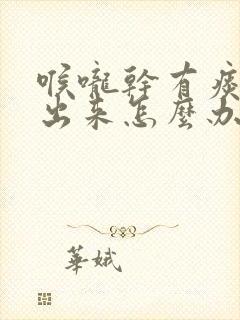 喉嚨幹有痰
出来怎麼办
華娥